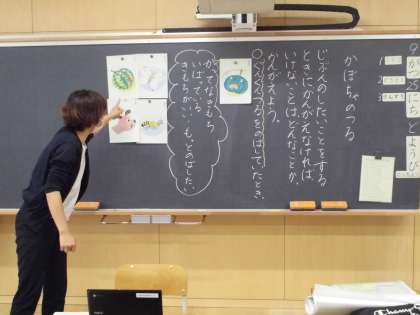 9
が
25
にち
どようび
1
2
3
かぼちゃのつる
じぶんのしたいことをする
ときにかんがえなければ
いけないことは、どんなことか、
かんがえよう。
つるをのばしていたとき、
かってなきもち
いばっている
きもちがいい
もっとのばしたい
Champion